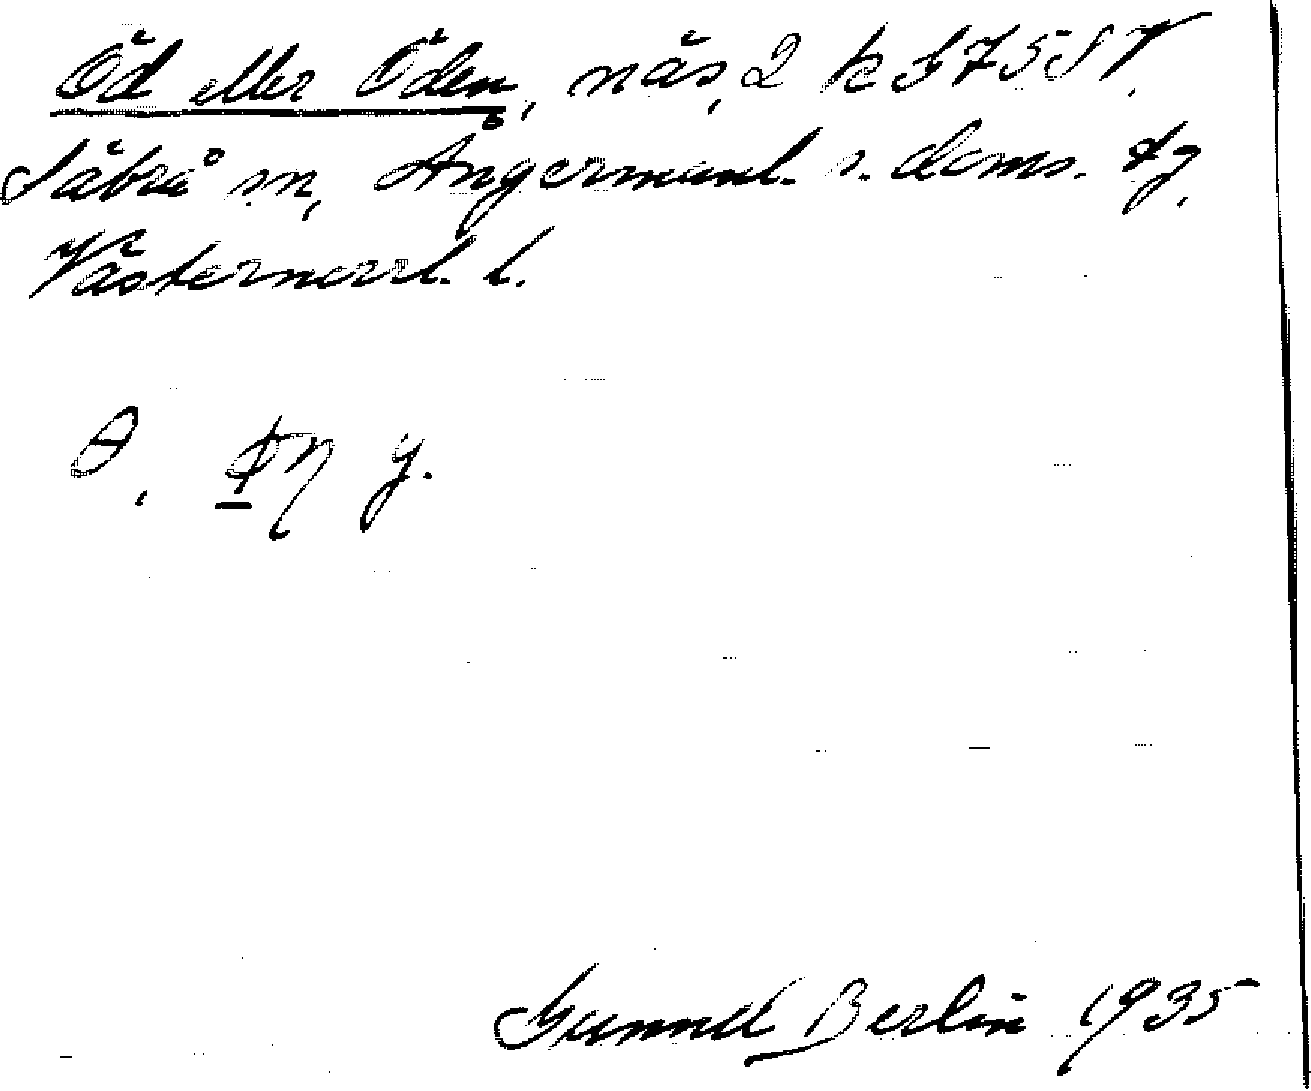 Öd eller Öden, näs, 2 k
Säbrå sn, Ångermanl. s. doms. tg.
Västernorrl. l.
Gunnel Berlin 1935